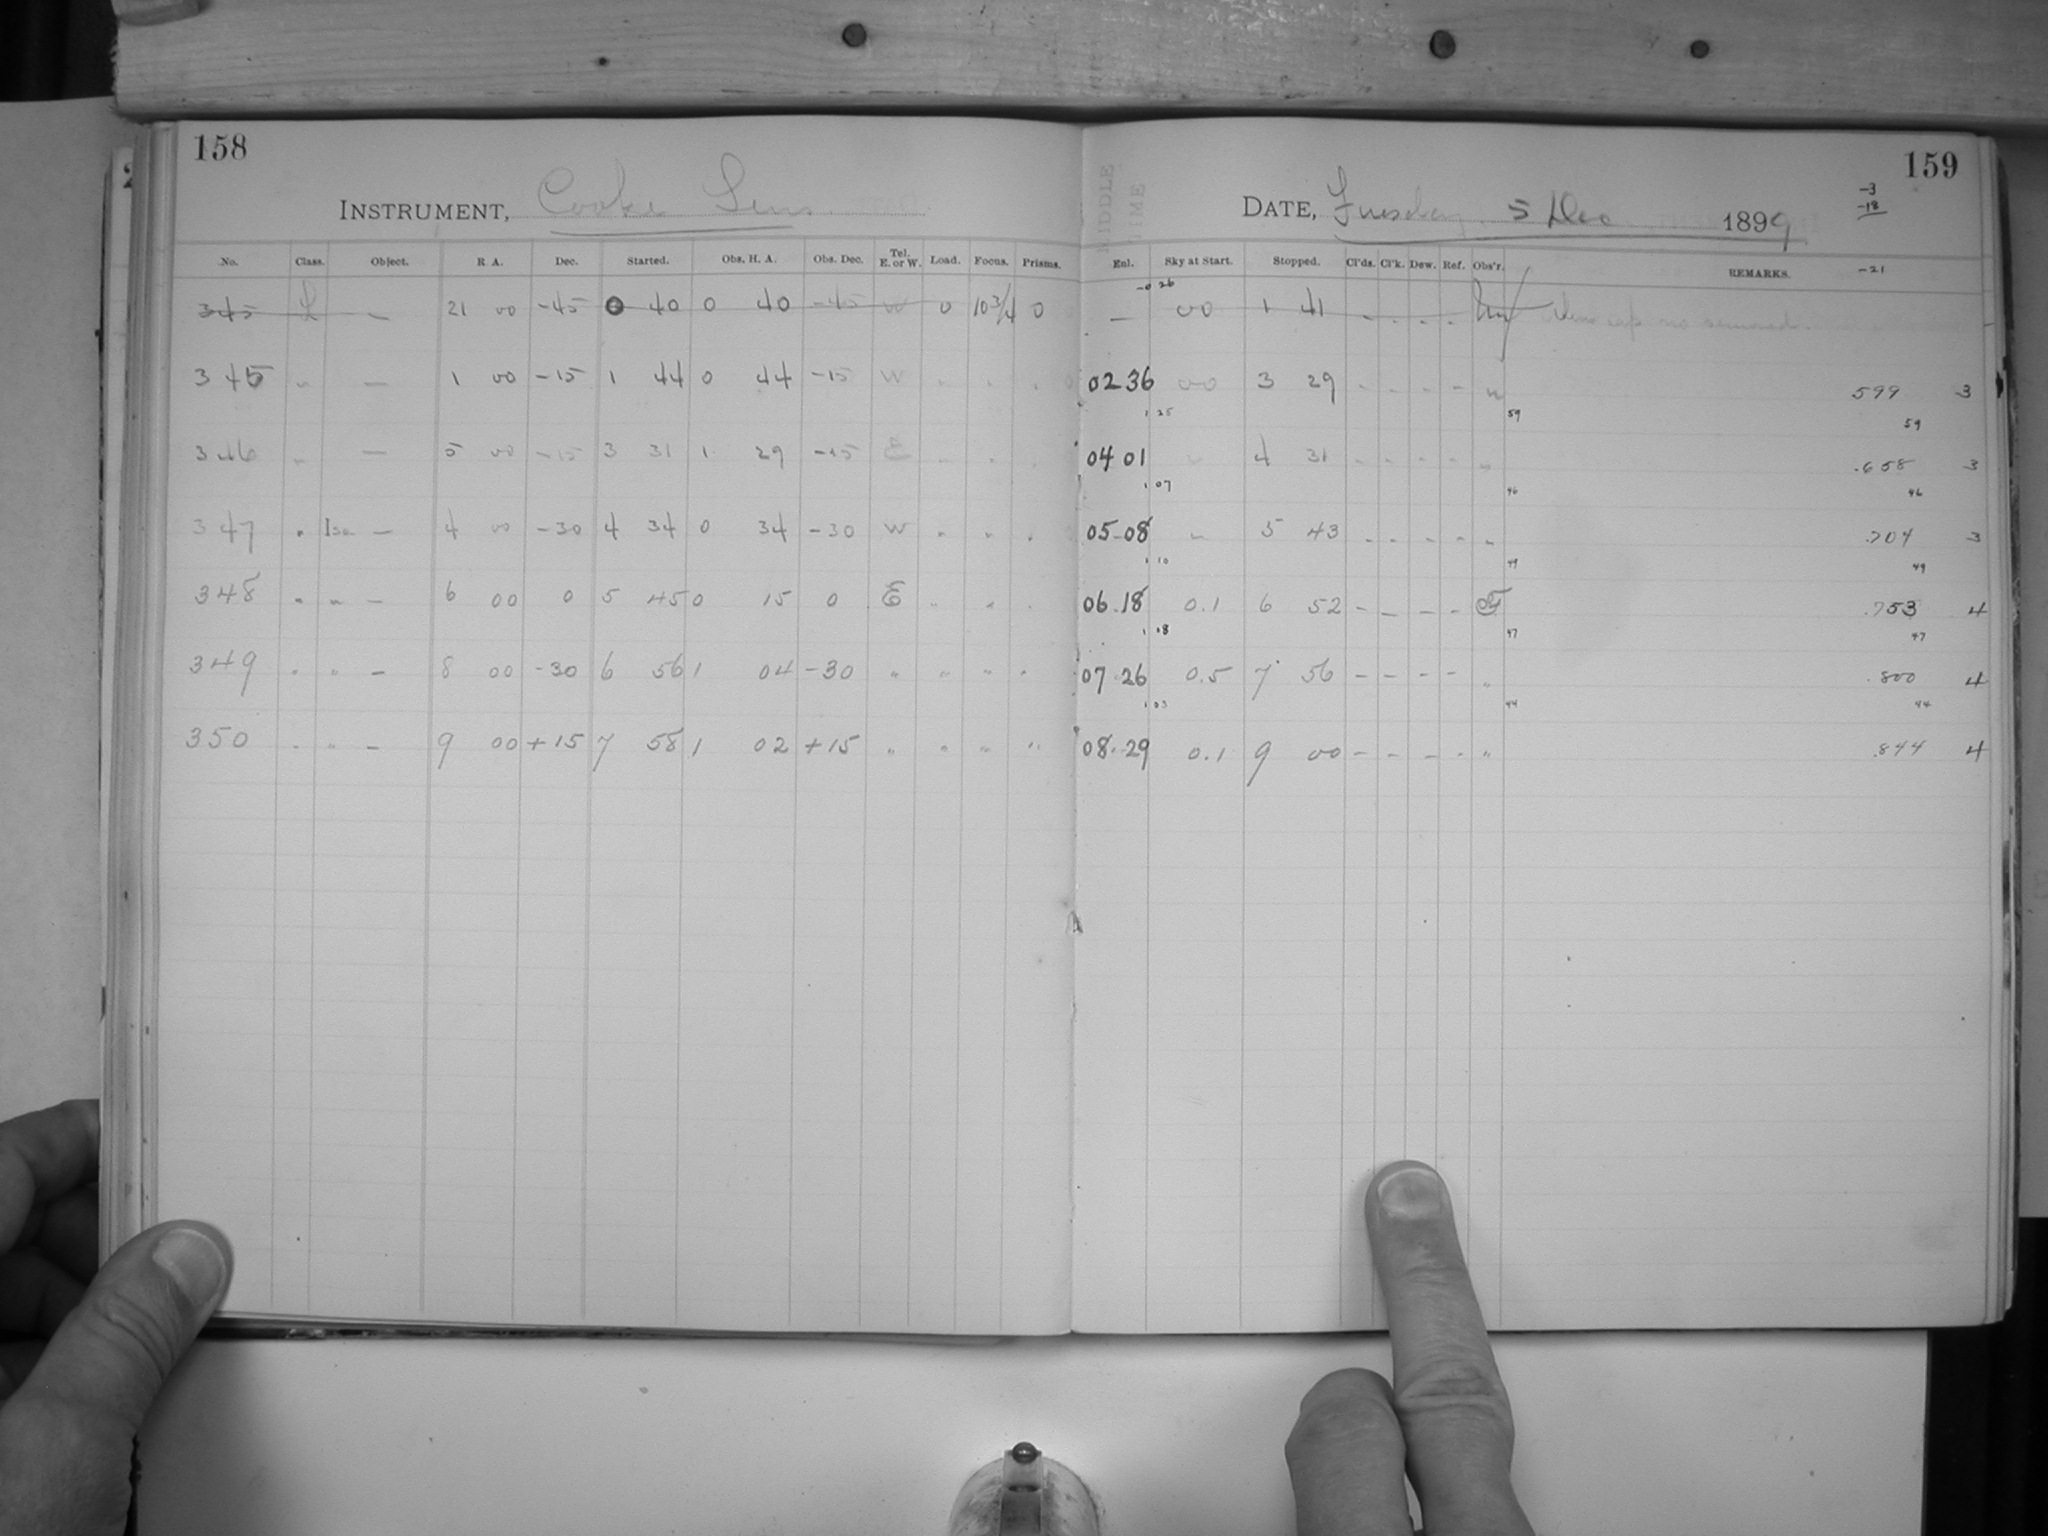 158
INSTRUMENT, Cooke Lens
No. Class. Object. R. A. Dec. Started. Obs. H. A. Obs. Dec. Tel. E. or W. Load. Focus. Prisms.
345 L — 21 00 -45 0 40 0 40 -45 W 0 10 3/4 0
345 " — 1 00 -15 1 44 0 44 -15 W " " "
346 " — 5 00 -15 3 31 1 29 -15 E " " "
347 " Iso — 4 00 -30 4 34 0 34 -30 W " " "
348 " " — 6 00 0 5 45 0 15 0 E " " "
349 " " — 8 00 -30 6 56 1 04 -30 " " " "
350 " " — 9 00 +15 7 58 1 02 +15 " " " "
159
MIDDLE TIME
DATE, Tuesday 5 Dec 1899
-3
-18
-21
Enl. Sky at Start. Stopped. Cl'ds. Cl'k. Dew. Ref. Obs'r. REMARKS.
-0 26
— 00 1 41 - - - - Lens cap no removed.
02 36 00 3 29 - - - - " 599 3
1 25 59 59
04 01 " 4 31 - - - - " .658 3
1 07 46 46
05 08 " 5 43 - - - - " .704 3
1 10 49 49
06 18 0.1 6 52 - - - - .753 4
1 08 47 47
07 26 0.5 7 56 - - - - " .800 4
1 03 44 44
08 29 0.1 9 00 - - - - " .844 4